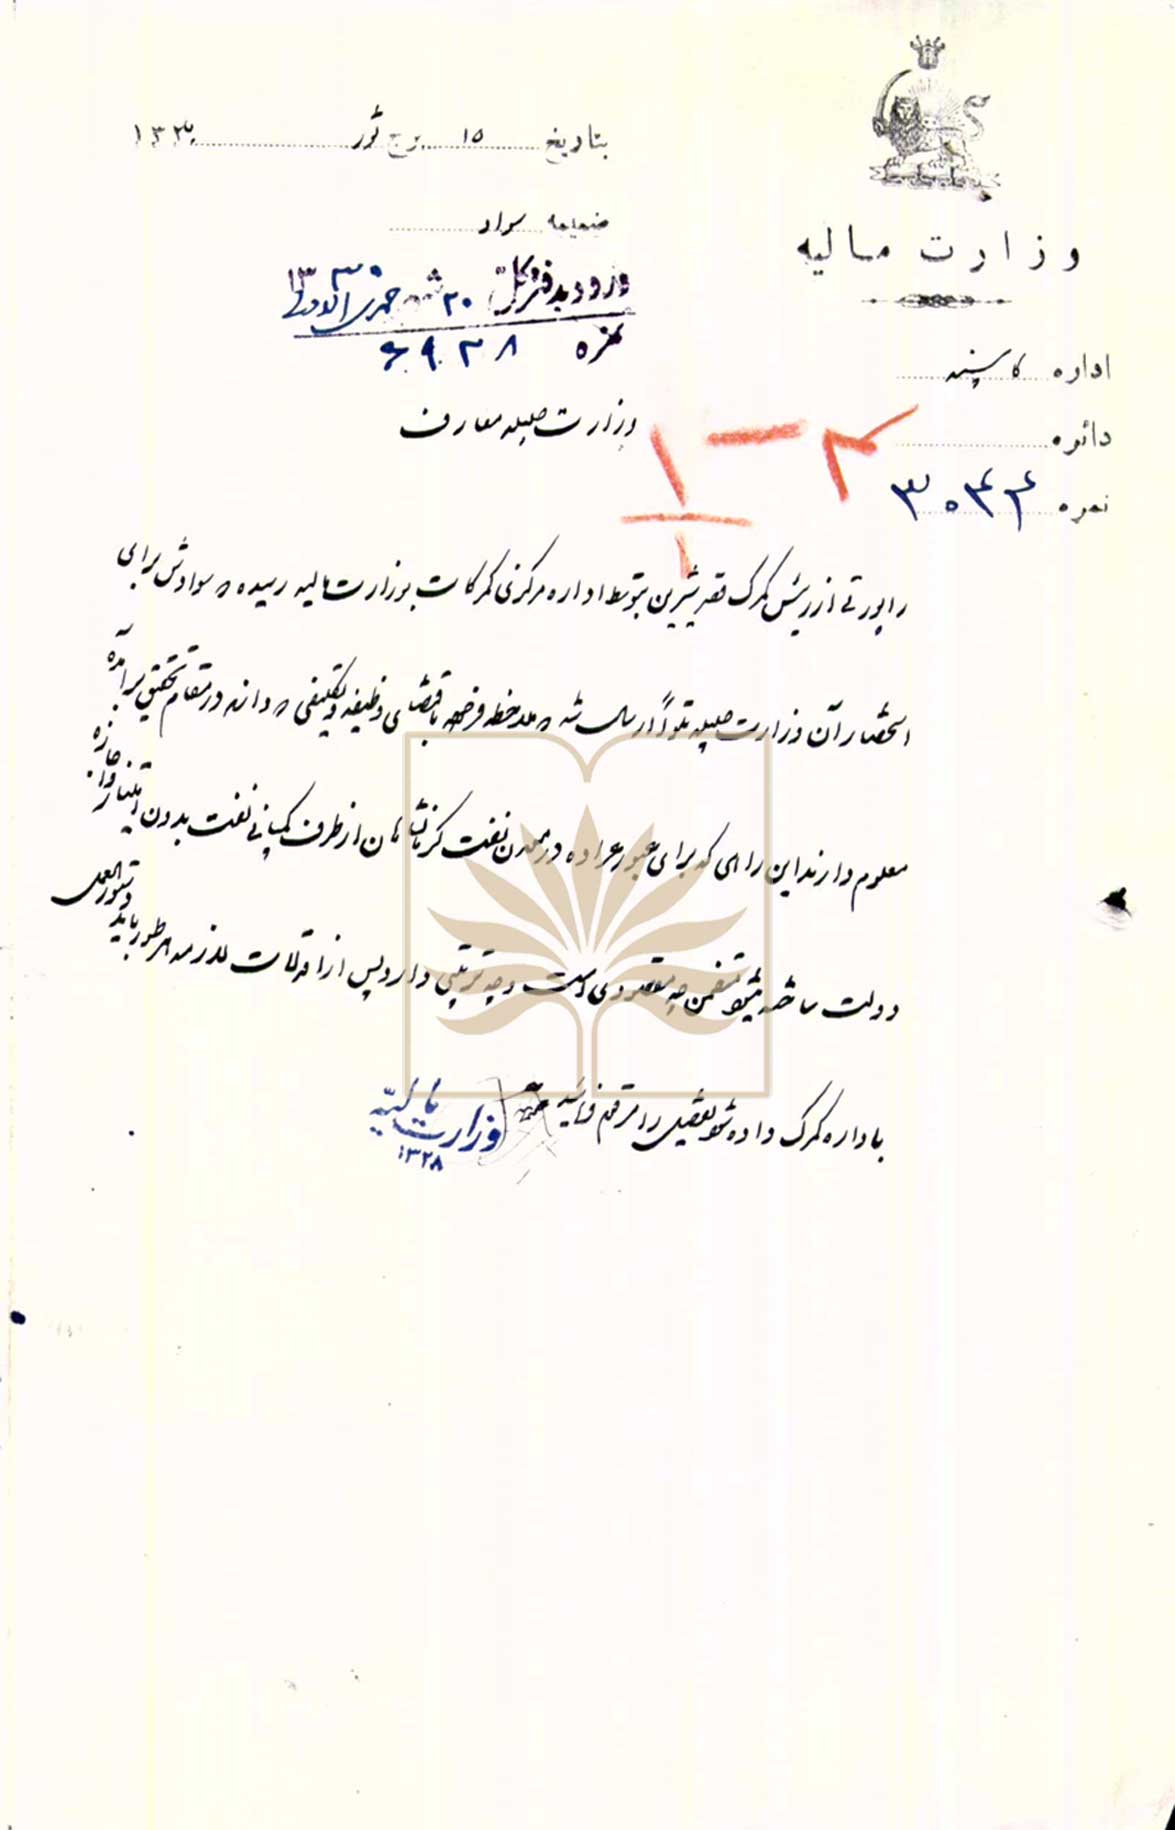 وزارت مالیه
بتاریخ ۱۵ برج ثور ۱۳۳۰
ضمیمه سواد
ورود بدفتر کل ۲۰ شهر جمادی الاولی ۱۳۳۰
نمره ۶۹۲۸
اداره کابینه
دائره
نمره ۳۰۴۴
وزارت جلیله معارف
راپورتی از رئیس گمرک قصرشیرین بتوسط اداره مرکزی گمرکات بوزارت مالیه رسیده سوادش برای
استحضار آن وزارت جلیله تلواً ارسال شد ملاحظه فرموده باقتضای وظیفه و تکلیفی که دارند در مقام تحقیق برآمده
معلوم دارند این راهی که برای عبور عراده در معدن نفت کرمانشاهان از طرف کمپانی نفت بدون امتیاز و اجازه
دولت ساخته میشود متضمن چه مقصودی است و چه ترتیبی دارد پس از اقدامات لازمه هر طور باید دستورالعمل
باداره گمرک داده شود تفصیل را مرقوم فرمائید
وزارت مالیه
۱۳۲۸